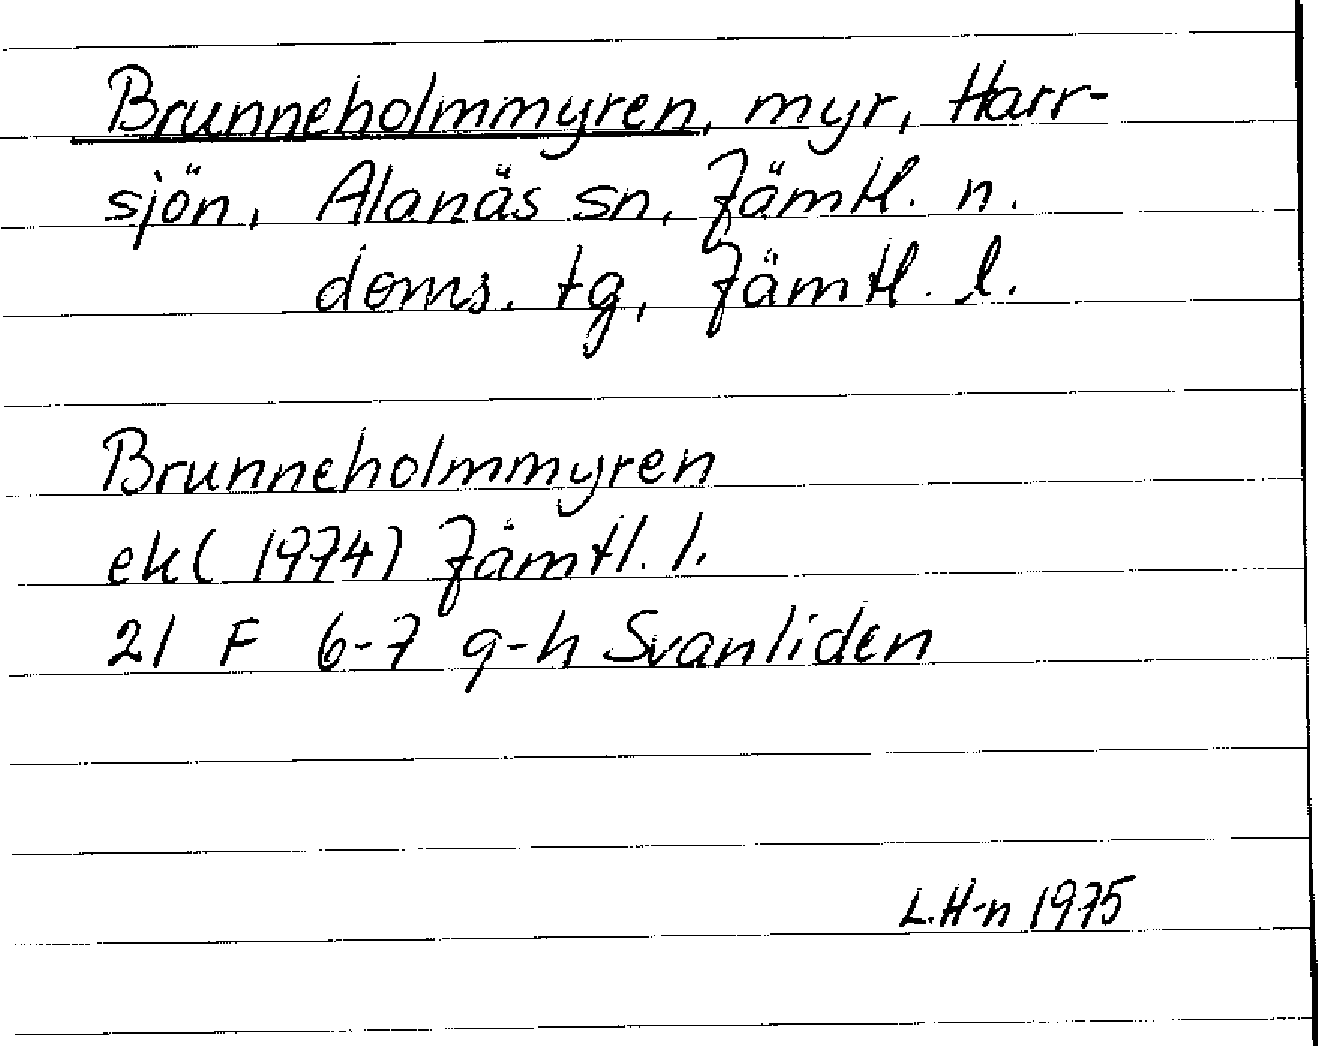 Brunneholmmyren, myr, Harr-
sjön, Alanäs sn, Jämtl. n.
doms. tg, Jämtl. l.
Brunneholmmyren
ek (1974) Jämtl. l.
21 F 6-7 g-h Svanliden
L.H-n 1975